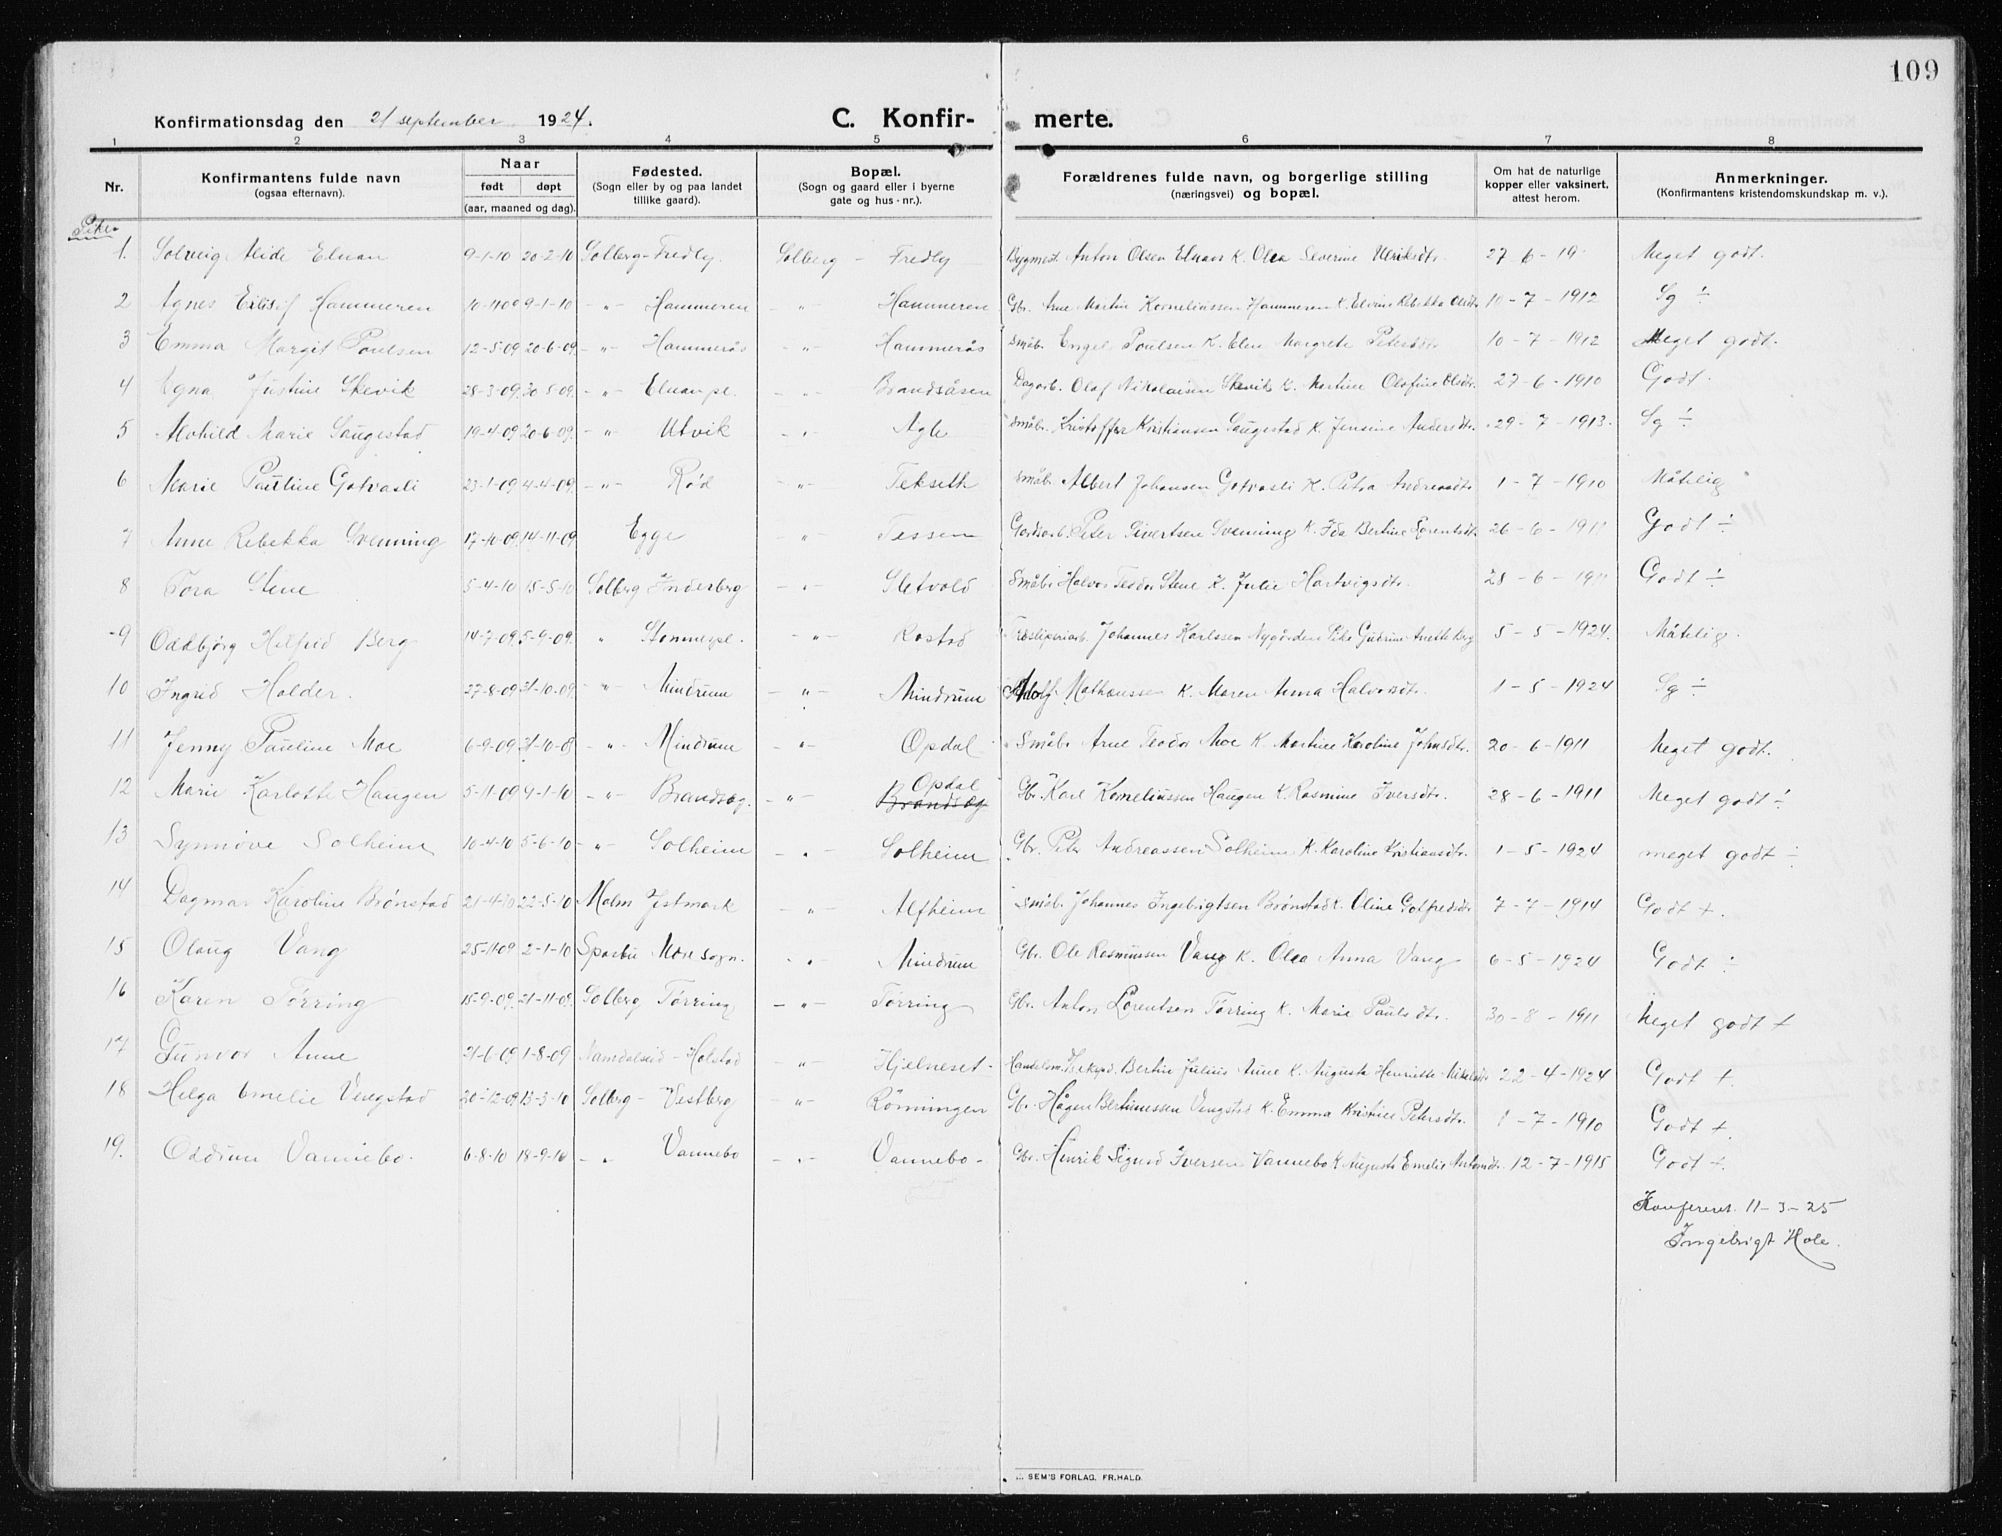 109
Konfirmationsdag den 21 september 1924. C. Konfir- merte.
1 2 3 4 5 6 7 8
Nr. Konfirmantens fulde navn (ogsaa efternavn). Naar født døpt (aar, maaned og dag). Fødested. (Sogn eller by og paa landet tillike gaard). Bopæl. (Sogn og gaard eller i byerne gate og hus-nr.). Forældrenes fulde navn, og borgerlige stilling (næringsvei) og bopæl. Om hat de naturlige kopper eller vaksinert, attest herom. Anmerkninger. (Konfirmantens kristendomskundskap m. v.).
Piker
1. Solveig Alide Elnan 9-1-10 20-2-10 Solberg - Fredly. Solberg - Fredly Bygmest. Anton Olsen Elnan K. Olea Severine Ulriksdtr. 27-6-19 Meget godt.
2 Agnes Eilisif Hammeren 10-11-09 9-1-10 -"- Hammeren " Hammeren Gbr. Arne Martin Korneliussen Hammeren K. Elvine Rebekka Olsdtr 10-7-1912 Sg ÷
3 Emma Margit Poulsen 12-5-09 20-6-09. -"- Hammerås -"- Hammerås Småbr. Engel Poulsen K. Elen Margrete Petersdtr 10-7-1912 Meget godt.
4 Agna Justine Skevik 28-3-09. 30-5-09. -"- Elnan pl. -"- Brandsåsen Dagarb. Olaf Nikolaisen Skevik K. Martine Olafine Olsdtr. 27-6-1910 Godt.
5 Alohild Marie Saugestad 19-4-09 20-6-09. -"- Utvik -"- Agle Småbr. Kristoffer Kristiansen Saugestad K. Jensine Andersdtr. 29-7-1913. Sg ÷
6 Marie Pauline Gotvasli 23-1-09. 4-4-09. -"- Rød -"- Tekseth Småbr. Albert Johansen Gotvasli K. Petra Andreasdtr 1-7-1910 Måtelig
7 Anne Rebekka Svenning 17-10-09. 14-11-09 Egge -"- Tessem Gårdsarb. Peter Sivertsen Svenning K. Ida Bertine Lorentsdtr. 26-6-1911 Godt ÷
8 Tora Stene 5-4-10 15-5-10 Solberg Inderberg -"- Sletvold Småbr. Halvor Teodor Stene K. Julie Hartvigsdtr. 28-6-1911 Godt ÷
9 Oddbjørg Helfrid Berg 14-7-09. 5-9-09. " pl. -"- Rostad Træsliperiarb. Johannes Karlssen Nygården Pike Gudrun Anette Berg 5-5-1924. Måtelig.
10 Ingrid Holder. 27-8-09. 31-10-09. -"- Mindrum -"- Mindrum Adolf Mathaussen K. Maren Anna Halvorsdtr. 1-5-1924 Sg ÷
11 Jenny Pauline Moe 6-9-09. 31-10-08 -"- Mindrum -"- Opdal Småbr. Arne Teodor Moe K. Martine Karoline Johnsdtr. 20-6-1911 Meget godt.
12 Marie Karlotte Haugen 5-11-09 9-1-10 -"- Brandsøg. -"- Opdal Brandsøg Gbr. Karl Korneliussen Haugen K. Rasmine Iversdtr. 28-6-1911 Meget godt ÷
13 Synnøve Solheim 10-4-10 5-6-10 -"- Solheim -"- Solheim Gbr. Peter Andreassen Solheim K. Karoline Kristiansdtr. 1-5-1924 meget godt ÷
14 Dagmar Karoline Brønstad 21-4-10 22-5-10 Malm Jstmark -"- Alfheim Småbr. Johannes Ingebrigtsen Brønstad K. Oline Golfredsdtr 7-7-1914 Godt +.
15 Olaug Vang 25-11-09 2-1-10 Sparbu Mære sogn. " Mindrum Gbr. Ole Rasmussen Vang K. Olea Anna Vang 6-5-1924 Godt ÷
16 Karen Tørring 15-9-09. 21-11-09. Solberg Tørring -"- Tørring Gbr. Anton Lorentsen Tørring K. Marie Paulsdtr. 30-8-1911 Meget godt +
17 Gunvor Anne 21-6-09. 1-8-09 Namdalseid - Holstad -"- Hjelneset - Handelsm. Bertin Julius Arne K. Augusta Henriette 22-4-1924 Godt +.
18 Helga Emelie Vengstad 20-12-09. 13-3-10 Solberg - Vestberg -"- Rönningen Gbr. Hågen Bertinussen Vengstad K. Emma Kristine Petersdtr. 1-7-1910 Godt +.
19. Oddrun Vannebo. 6-8-10 18-9-10 -"- Vannebo -"- Vannebo - Gbr. Henrik Sigurd Iversen Vannebo K. Augusta Emelie Antondtr. 12-7-1915 Godt +.
Konfereret 11-3-25
Ingebrigt Hole.
SEM'S FORLAG, FR.HALD.